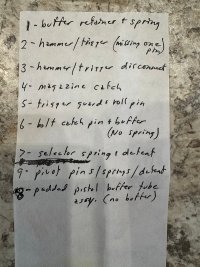 1 - buffer retainer + spring
2 - hammer/trigger (missing one
pin)
3 - hammer/trigger disconnect
4 - magazine catch
5 - trigger guard & roll pin
6 - bolt catch pin & buffer
(No spring)
7 - selector spring & detent
9 - pivot pins/springs/detent
8 - padded pistol buffer tube
assy. (no buffer)